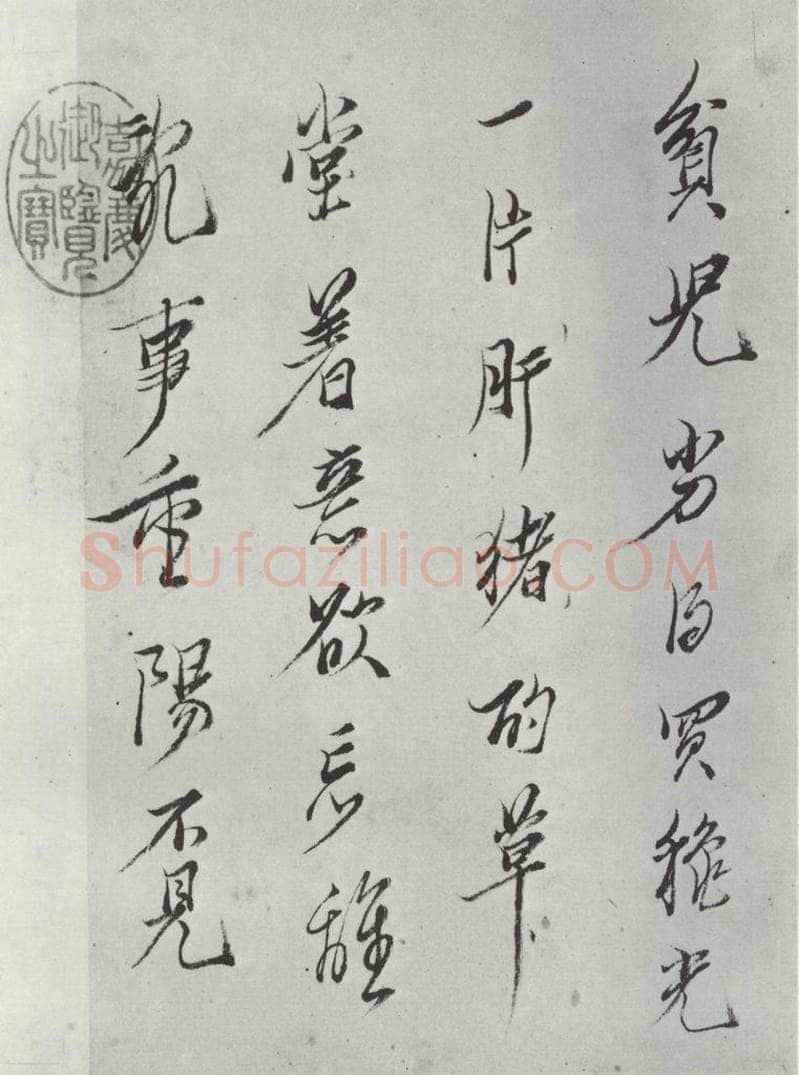 貧兒劣得買穐光
一片肝猪酌草
堂著意欲忘離
亂事重陽不見
嘉慶
御覽
之寶
Shufaziliao.COM